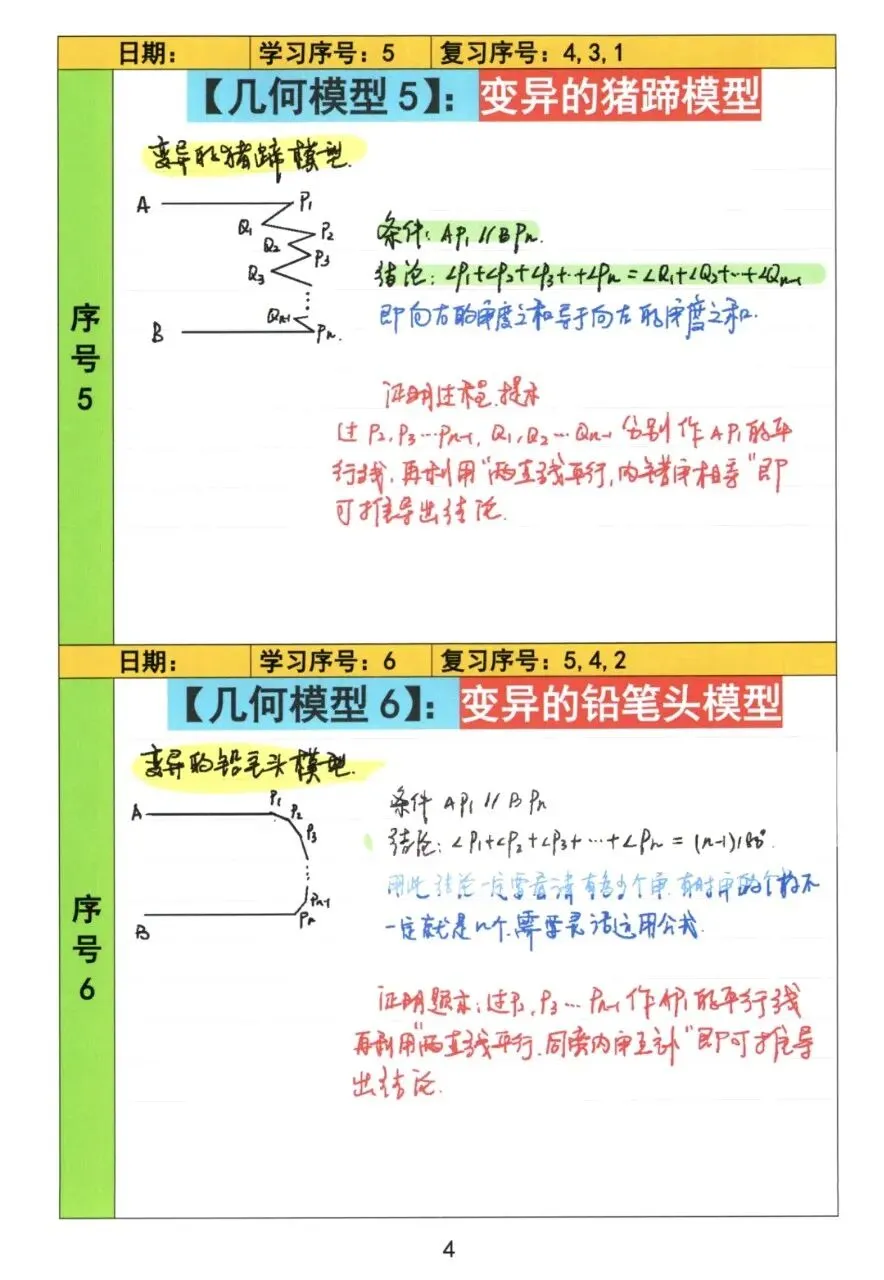 日期： 学习序号：5 复习序号：4,3,1
【几何模型5】：变异的猪蹄模型
变异的猪蹄模型.
A P₁
Q₁ P₂
Q₂ P₃
Q₃
Qn-1
B Pn.
条件：AP₁∥BPn.
结论：∠P₁+∠P₂+∠P₃+…+∠Pn=∠Q₁+∠Q₂+…+∠Qn-1
即向右的角度之和等于向左的角度之和.
序号5
证明过程.提示
过P₂,P₃…Pn-1,Q₁,Q₂…Qn-1分别作AP₁的平
行线,再利用“两直线平行,内错角相等”即
可推导出结论.
日期： 学习序号：6 复习序号：5,4,2
【几何模型6】：变异的铅笔头模型
变异的铅笔头模型.
A P₁
P₂
P₃
Pn-1
B Pn
条件 AP₁∥BPn
结论：∠P₁+∠P₂+∠P₃+…+∠Pn=(n-1)180°.
用此结论一定要看清有多少个角.有时角的个数不
一定就是n个.需要灵活运用公式.
序号6
证明提示：过P₂,P₃…Pn-1作AP₁的平行线
再利用“两直线平行.同旁内角互补”即可推导
出结论.
4